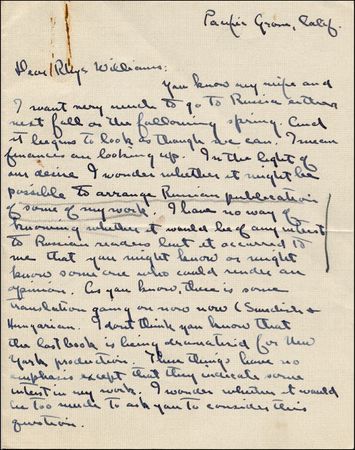 Pacific Grove, Calif.
Dear Rhys Williams:
You know my wife and
I want very much to go to Russia either
next fall or the following spring. And
it begins to look as though we can. I mean
finances are looking up. In the light of
our desire I wonder whether it might be
possible to arrange Russian publication
of some of my work. I have no way of
knowing whether it would be of any interest
to Russian readers but it occurred to
me that you might know or might
know some one who could render an
opinion. As you know, there is some
translation going on now now (Swedish &
Hungarian. I dont think you know that
the last book is being dramatized for New
York production. These things have no
emphasis except that they indicate some
interest in my work. I wonder whether it would
be too much to ask you to consider this
question.